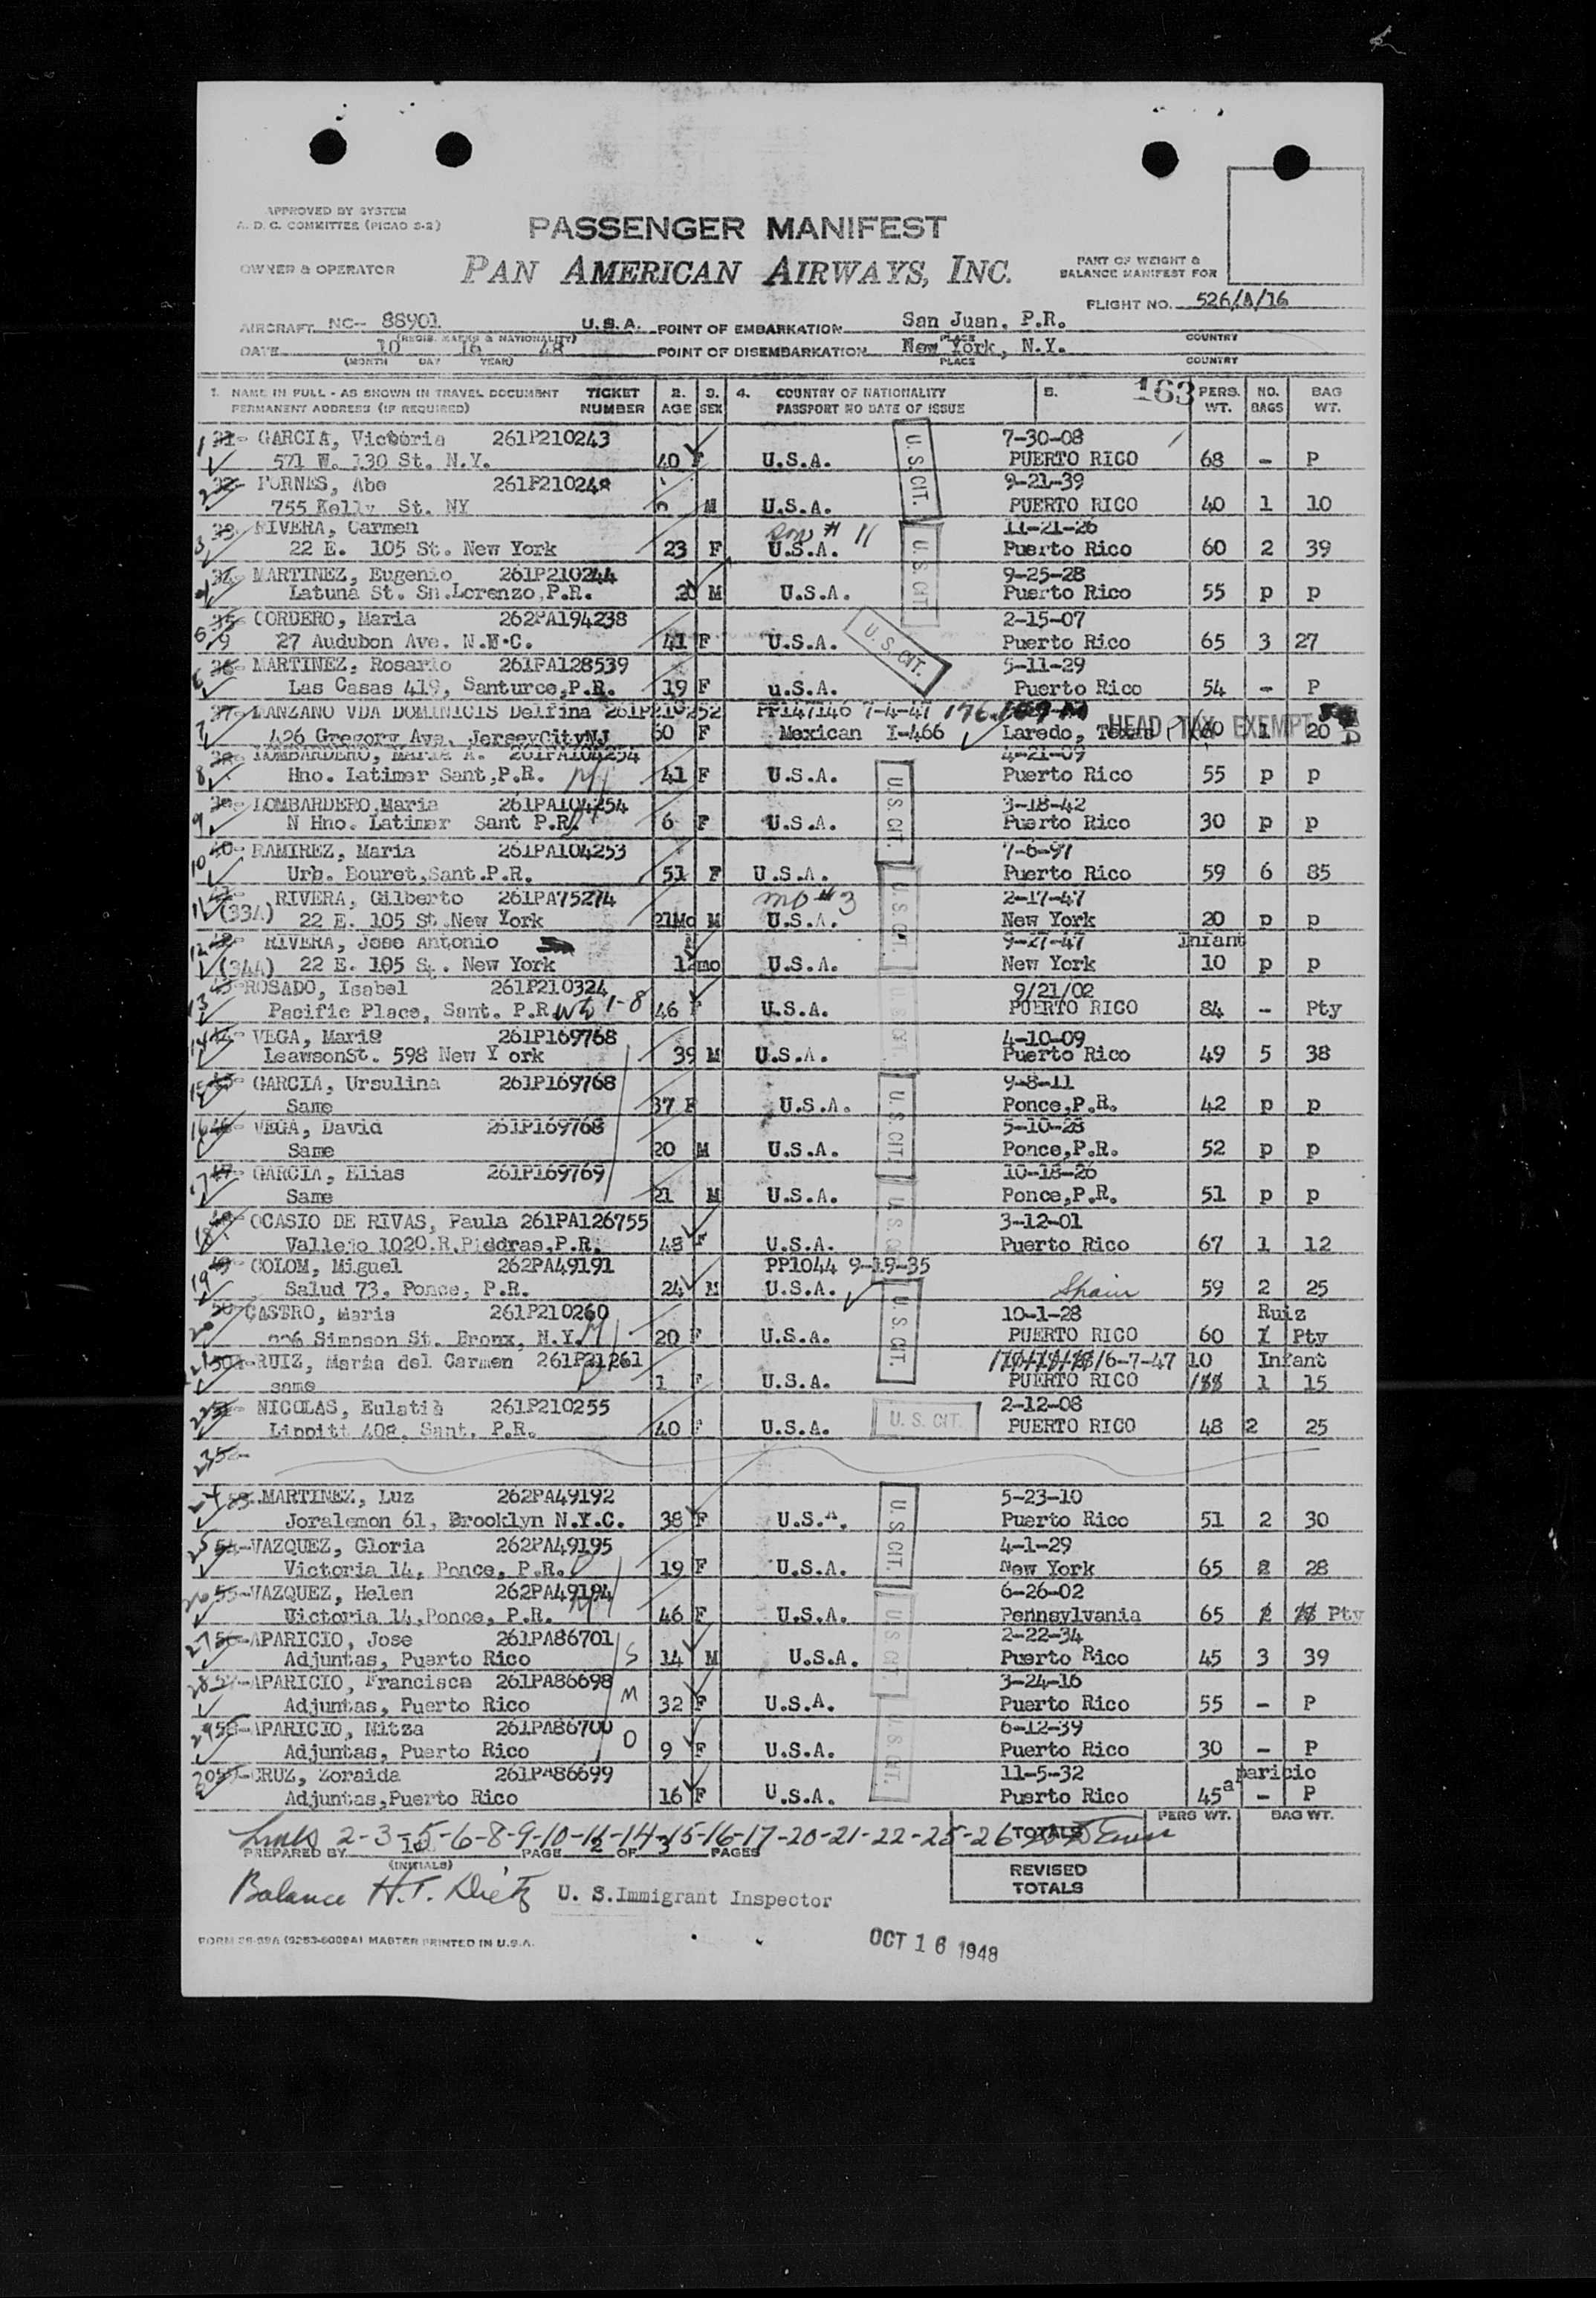 APPROVED BY SYSTEM
A. D. C. COMMITTEE (PICAO S-2)
PASSENGER MANIFEST
OWNER & OPERATOR
PAN AMERICAN AIRWAYS, INC.
PART OF WEIGHT &
BALANCE MANIFEST FOR
FLIGHT NO. 526/A/16
AIRCRAFT NC- 88901 U.S.A. POINT OF EMBARKATION San Juan, P.R.
(REGIS. MARKS & NATIONALITY) PLACE COUNTRY
DATE 10 16 48 POINT OF DISEMBARKATION New York, N.Y.
(MONTH DAY YEAR) PLACE COUNTRY
163
1. NAME IN FULL - AS SHOWN IN TRAVEL DOCUMENT TICKET 2. 3. 4. COUNTRY OF NATIONALITY 5. PERS. NO. BAG
PERMANENT ADDRESS (IF REQUIRED) NUMBER AGE SEX PASSPORT NO DATE OF ISSUE WT. BAGS WT.
1 GARCIA, Victoria 261P210243 7-30-08
571 W. 130 St. N.Y. 40 F U.S.A. PUERTO RICO 68 - P
2 Abe 261P210248 9-21-39
755 Kelly St. NY M U.S.A. PUERTO RICO 40 1 10
3 RIVERA, Carmen son # 11 11-21-26
22 E. 105 St. New York 23 F U.S.A. Puerto Rico 60 2 39
4 MARTINEZ, Eugenio 261P210244 9-25-28
Latuna St. Sn.Lorenzo,P.R. 20 M U.S.A. Puerto Rico 55 p p
5 CORDERO, Maria 262PA194238 2-15-07
27 Audubon Ave. N.Y.C. 41 F U.S.A. Puerto Rico 65 3 27
6 MARTINEZ, Rosario 261PA128539 5-11-29
Las Casas 419, Santurce,P.R. 19 F u.S.A. Puerto Rico 54 - P
7 MANZANO VDA DOMINICIS Delfina 261P210252 PP147146 7-4-47
426 Gregory Ave. JerseyCityNJ 60 F Mexican I-466 Laredo, Texas HEAD TAX EXEMPT 1 20
8 LOMBARDERO, Maria A. 261PA104254 4-21-09
Hno. Latimer Sant,P.R. M 41 F U.S.A. Puerto Rico 55 p p
9 LOMBARDERO,Maria 261PA104254 3-18-42
N Hno. Latimer Sant P.R. 6 F U.S.A. Puerto Rico 30 p p
10 RAMIREZ, Maria 261PA104253 7-6-97
Urb. Bouret,Sant.P.R. 51 F U.S.A. Puerto Rico 59 6 85
11 RIVERA, Gilberto 261PA75274 mo # 3 2-17-47
(33A) 22 E. 105 St.New York 21Mo M U.S.A. New York 20 p p
12 RIVERA, Jose Antonio 9-27-47 Infant
(34A) 22 E. 105 St. New York 12mo U.S.A. New York 10 p p
13 ROSADO, Isabel 261P210324 9/21/02
Pacific Place, Sant. P.R. 1-8 46 F U.S.A. PUERTO RICO 84 - Pty
14 VEGA, Maria 261P169768 4-10-09
LeawsonSt. 598 New Y ork 39 M U.S.A. Puerto Rico 49 5 38
15 GARCIA, Ursulina 261P169768 9-8-11
Same 37 F U.S.A. Ponce,P.R. 42 p p
16 VEGA, David 261P169768 5-10-28
Same 20 M U.S.A. Ponce,P.R. 52 p p
17 GARCIA, Elias 261P169769 10-18-26
Same 21 M U.S.A. Ponce,P.R. 51 p p
18 OCASIO DE RIVAS, Paula 261PA126755 3-12-01
Vallejo 1020.R.Piedras,P.R. 48 F U.S.A. Puerto Rico 67 1 12
19 COLOM, Miguel 262PA49191 PP1044 9-19-35
Salud 73, Ponce, P.R. 24 M U.S.A. Spain 59 2 25
20 CASTRO, Maria 261P210260 10-1-28 Ruiz
Simpson St. Bronx, N.Y. M 20 F U.S.A. PUERTO RICO 60 1 Pty
21 50A-RUIZ, Maria del Carmen 261P21261 6-7-47 10 Infant
same 1 F U.S.A. PUERTO RICO 1 15
22 NICOLAS, Eulatia 261P210255 2-12-08
Lippitt 408, Sant. P.R. 40 F U.S.A. PUERTO RICO 48 2 25
23
24 MARTINEZ, Luz 262PA49192 5-23-10
Joralemon 61, Brooklyn N.Y.C. 38 F U.S.A. Puerto Rico 51 2 30
25 54-VAZQUEZ, Gloria 262PA49195 4-1-29
Victoria 14, Ponce, P.R. D 19 F U.S.A. New York 65 2 28
26 55-VAZQUEZ, Helen 262PA49194 6-26-02
Victoria 14,Ponce, P.R. M 46 F U.S.A. Pennsylvania 65 2 28 Pty
27 56-APARICIO, Jose 261PA86701 2-22-34
Adjuntas, Puerto Rico S 14 M U.S.A. Puerto Rico 45 3 39
28 57-APARICIO, Francisca 261PA86698 3-24-16
Adjuntas, Puerto Rico M 32 F U.S.A. Puerto Rico 55 - P
29 58-APARICIO, Nitza 261PA86700 6-12-39
Adjuntas, Puerto Rico D 9 F U.S.A. Puerto Rico 30 - P
30 59-CRUZ, Zoraida 261PA86699 11-5-32 aparicio
Adjuntas,Puerto Rico 16 F U.S.A. Puerto Rico 45 - P
U.S. CIT.
U.S. CIT.
U.S. CIT.
U.S. CIT.
U.S. CIT.
U.S. CIT.
U.S. CIT.
U.S. CIT.
U.S. CIT.
U. S. CIT.
U.S. CIT.
U.S. CIT.
U.S. CIT.
PERS WT. BAG WT.
Lines 2-3-5-6-8-9-10-11-14-15-16-17-20-21-22-25-26 TOTALS
PREPARED BY PAGE 2 OF 3 PAGES
(INITIALS)
REVISED
TOTALS
Balance H.T. Dietz U. S.Immigrant Inspector
FORM 28-99A (9253-6009A) MASTER PRINTED IN U.S.A.
OCT 16 1948